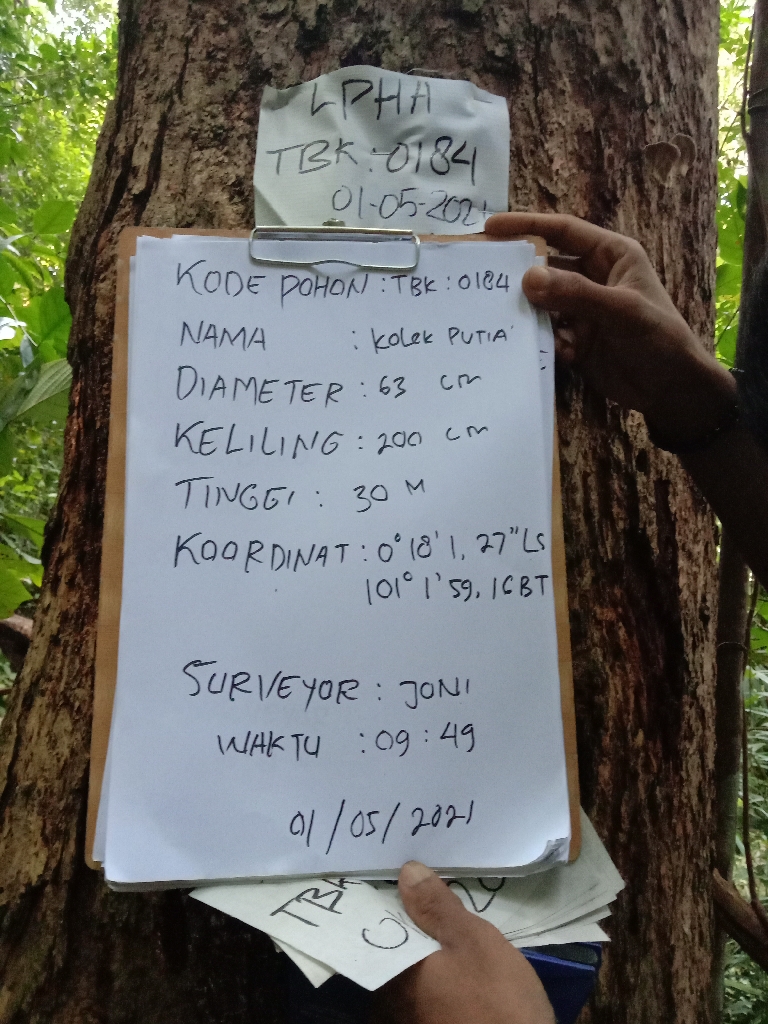 LPHA
TBK:0184
01-05-2021
KODE POHON : TBK : 0184
NAMA : Kolek PUTIA'
DIAMETER : 63 cm
KELILING : 200 cm
TINGGI : 30 M
KOORDINAT : 0° 18' 1, 27" LS
101° 1' 59, 16 BT
SURVEYOR : JONI
WAKTU : 09 : 49
01/05/2021
TBK